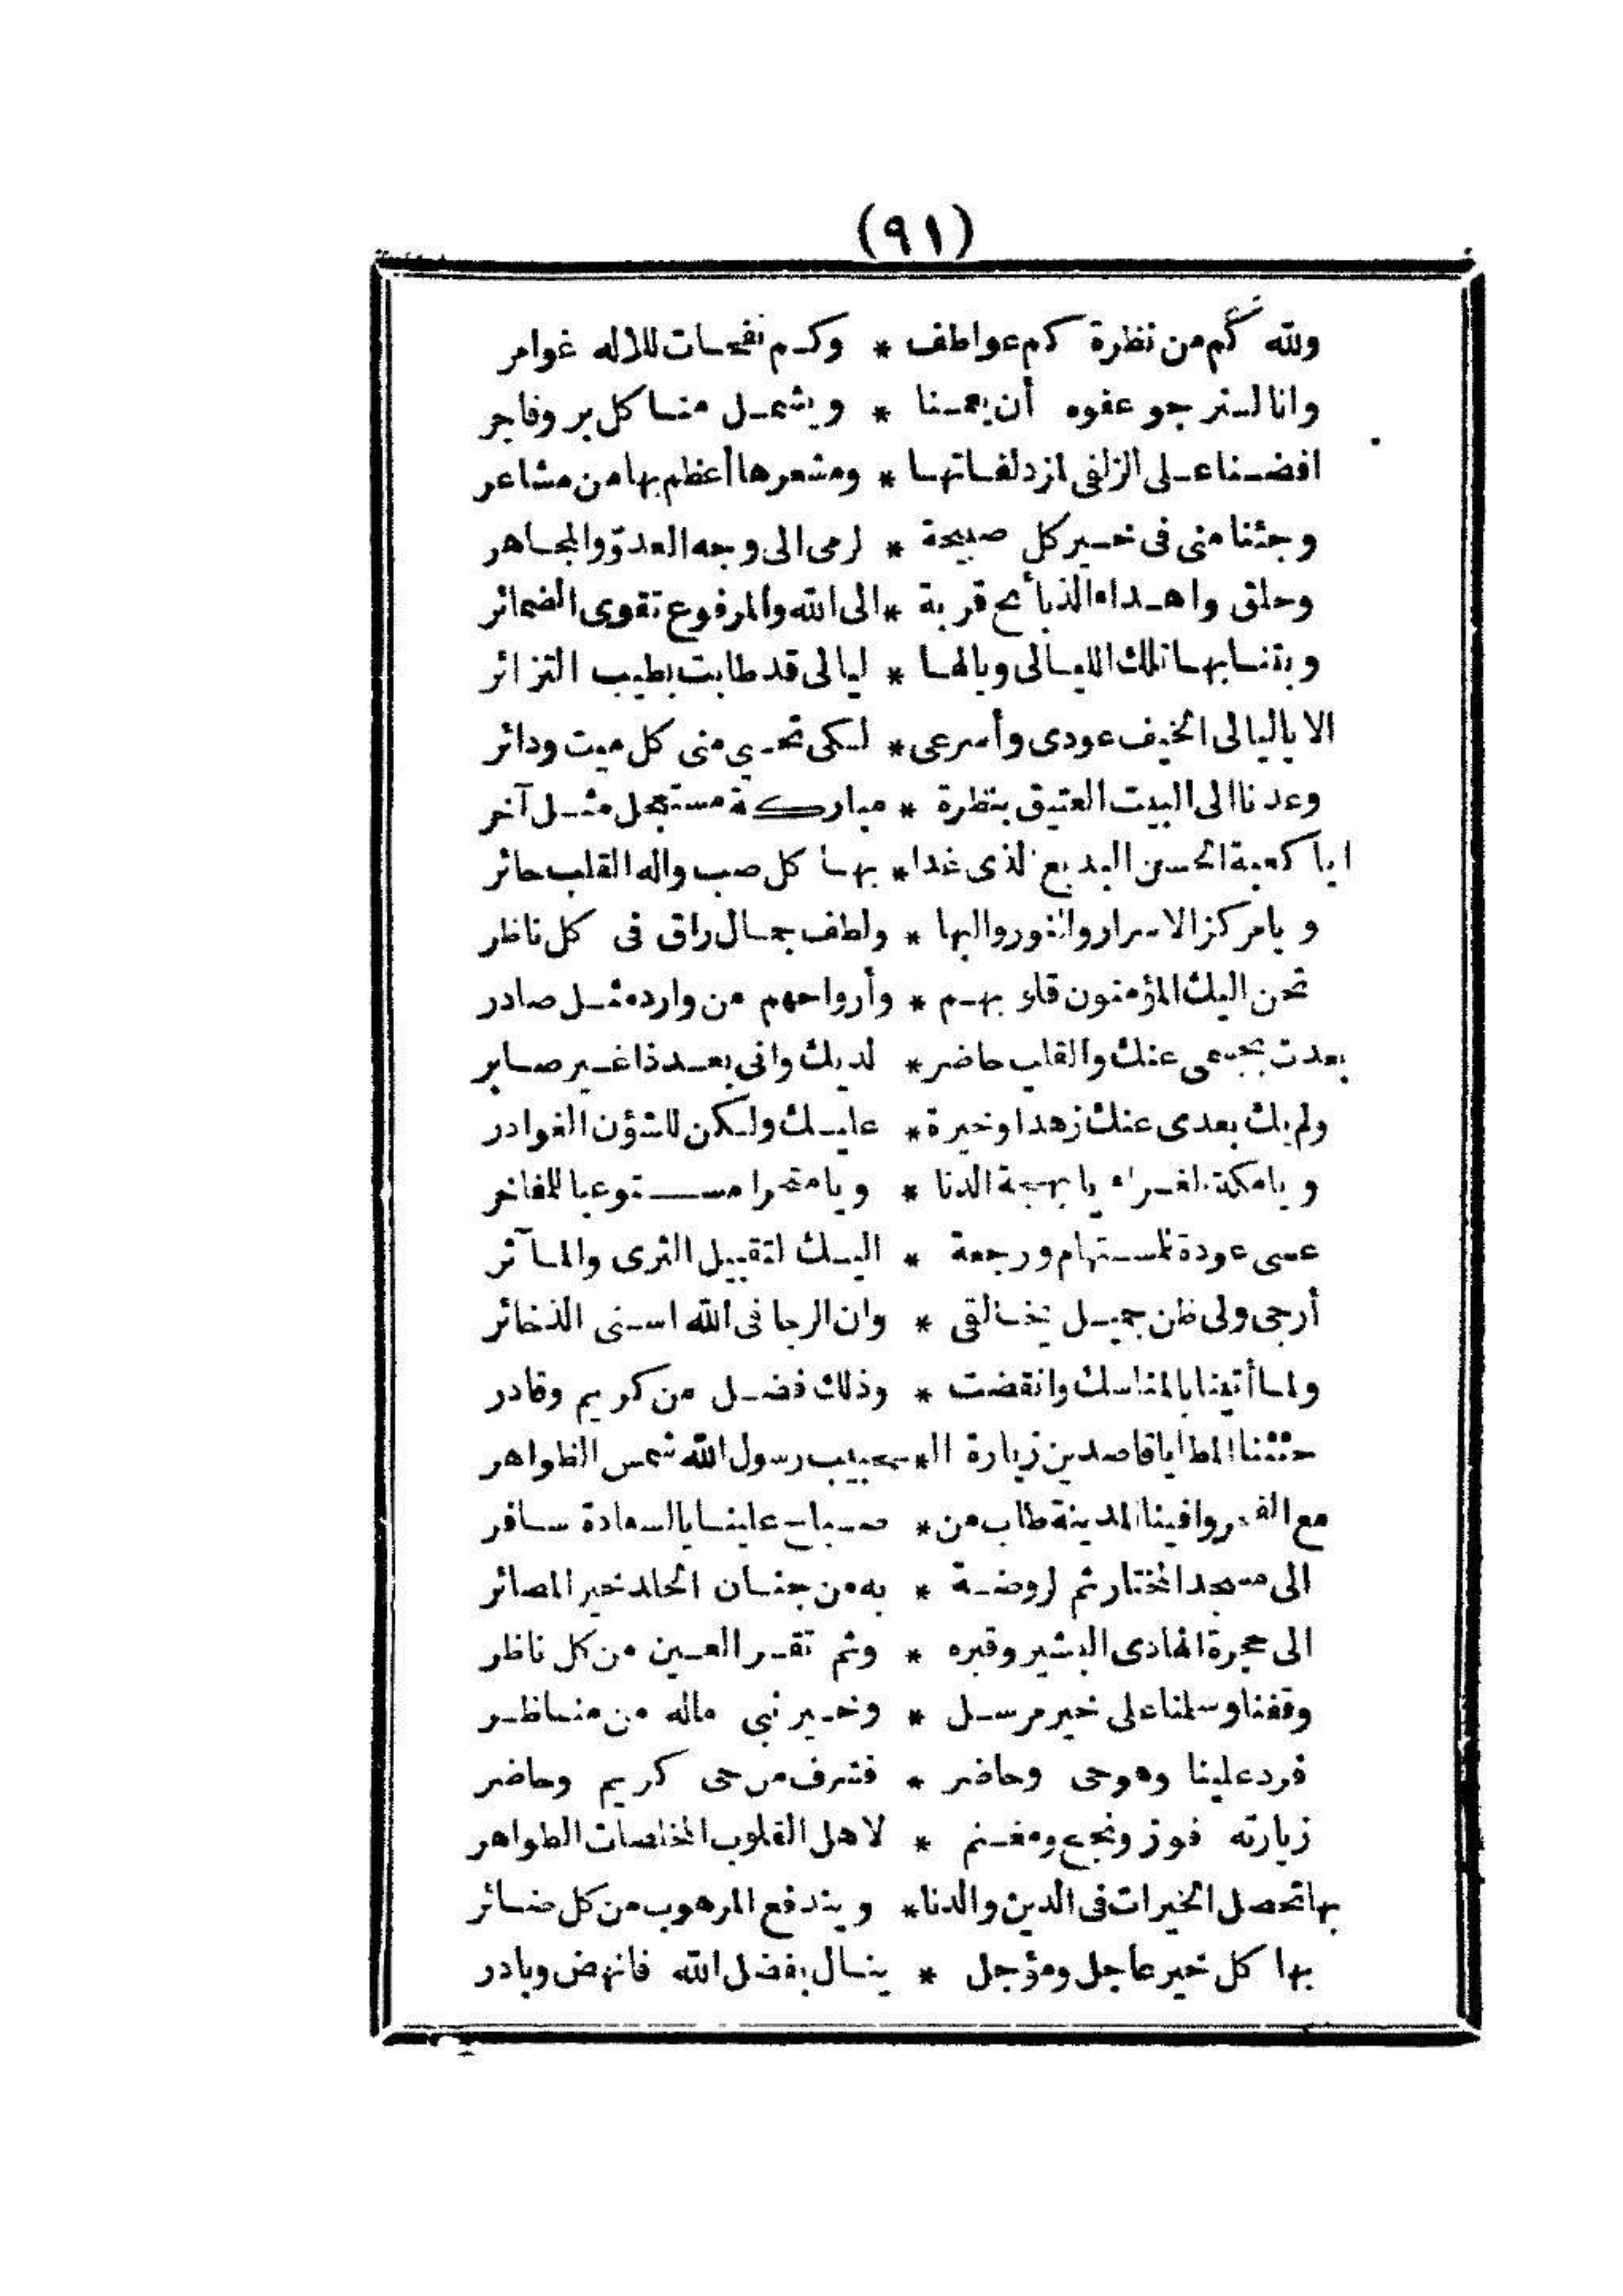 (٩١)
ولله كم من نظرة كم عواطف * وكم نفحات للاله غوامر
وانا لنرجو عفوه أن يعمنا * ويشمل منا كل بر وفاجر
افضنا على الزلفى لمزدلفاتها * ومشعرها أعظم بها من مشاعر
وجئنا منى فى خير كل صبيحة * لرمى الى وجه العدوّ والمجاهر
وحلق واهداء الذبائح قربة * الى الله والمرفوع تقوى الضمائر
وبتنا بها تلك الليالى ويالها * ليالى قد طابت بطيب التزائر
الا ياليالى الخيف عودى وأسرعى * لكى تحيي منى كل ميت ودائر
وعدنا الى البيت العتيق بنظرة * مباركة مستعجل مثل آخر
ايا كعبة الحسن البديع الذى غدا * بها كل صب واله القلب حائر
ويا مركز الاسرار والنور والبها * ولطف جمال راق فى كل ناظر
تحن اليك المؤمنون قلوبهم * وأرواحهم من وارد مثل صادر
بعدت بجسمى عنك والقلب حاضر * لديك وانى بعد ذا غير صابر
ولم يك بعدى عنك زهدا وخيرة * عليك ولكن للشؤن الغوادر
ويا مكة الغراء يا بهجة الدنا * ويا متجرا مستوعبا للمفاخر
عسى عودة للمستهام ورجعة * اليك لتقبيل الثرى والمآثر
أرجى ولى ظن جميل بخالقى * وان الرجا فى الله اسنى الذخائر
ولما أتينا بالمناسك وانقضت * وذلك فضل من كريم وقادر
حثثنا المطايا قاصدين زيارة الـ * ـحبيب رسول الله شمس الظواهر
مع الفجر وافينا المدينة طاب من * صباح علينا بالسعادة سافر
الى مسجد المختار ثم لروضة * به من جنان الخلد خير المصائر
الى حجرة الهادى البشير وقبره * وثم تقر العين من كل ناظر
وقفنا وسلمنا على خير مرسل * وخير نبي ماله من مناظر
فرد علينا وهو حى وحاضر * فشرف من حى كريم وحاضر
زيارته فوز ونجح ومغنم * لاهل القلوب المخلصات الطواهر
بها تحصل الخيرات فى الدين والدنا * ويندفع المرهوب من كل ضائر
بها كل خير عاجل ومؤجل * ينال بفضل الله فانهض وبادر